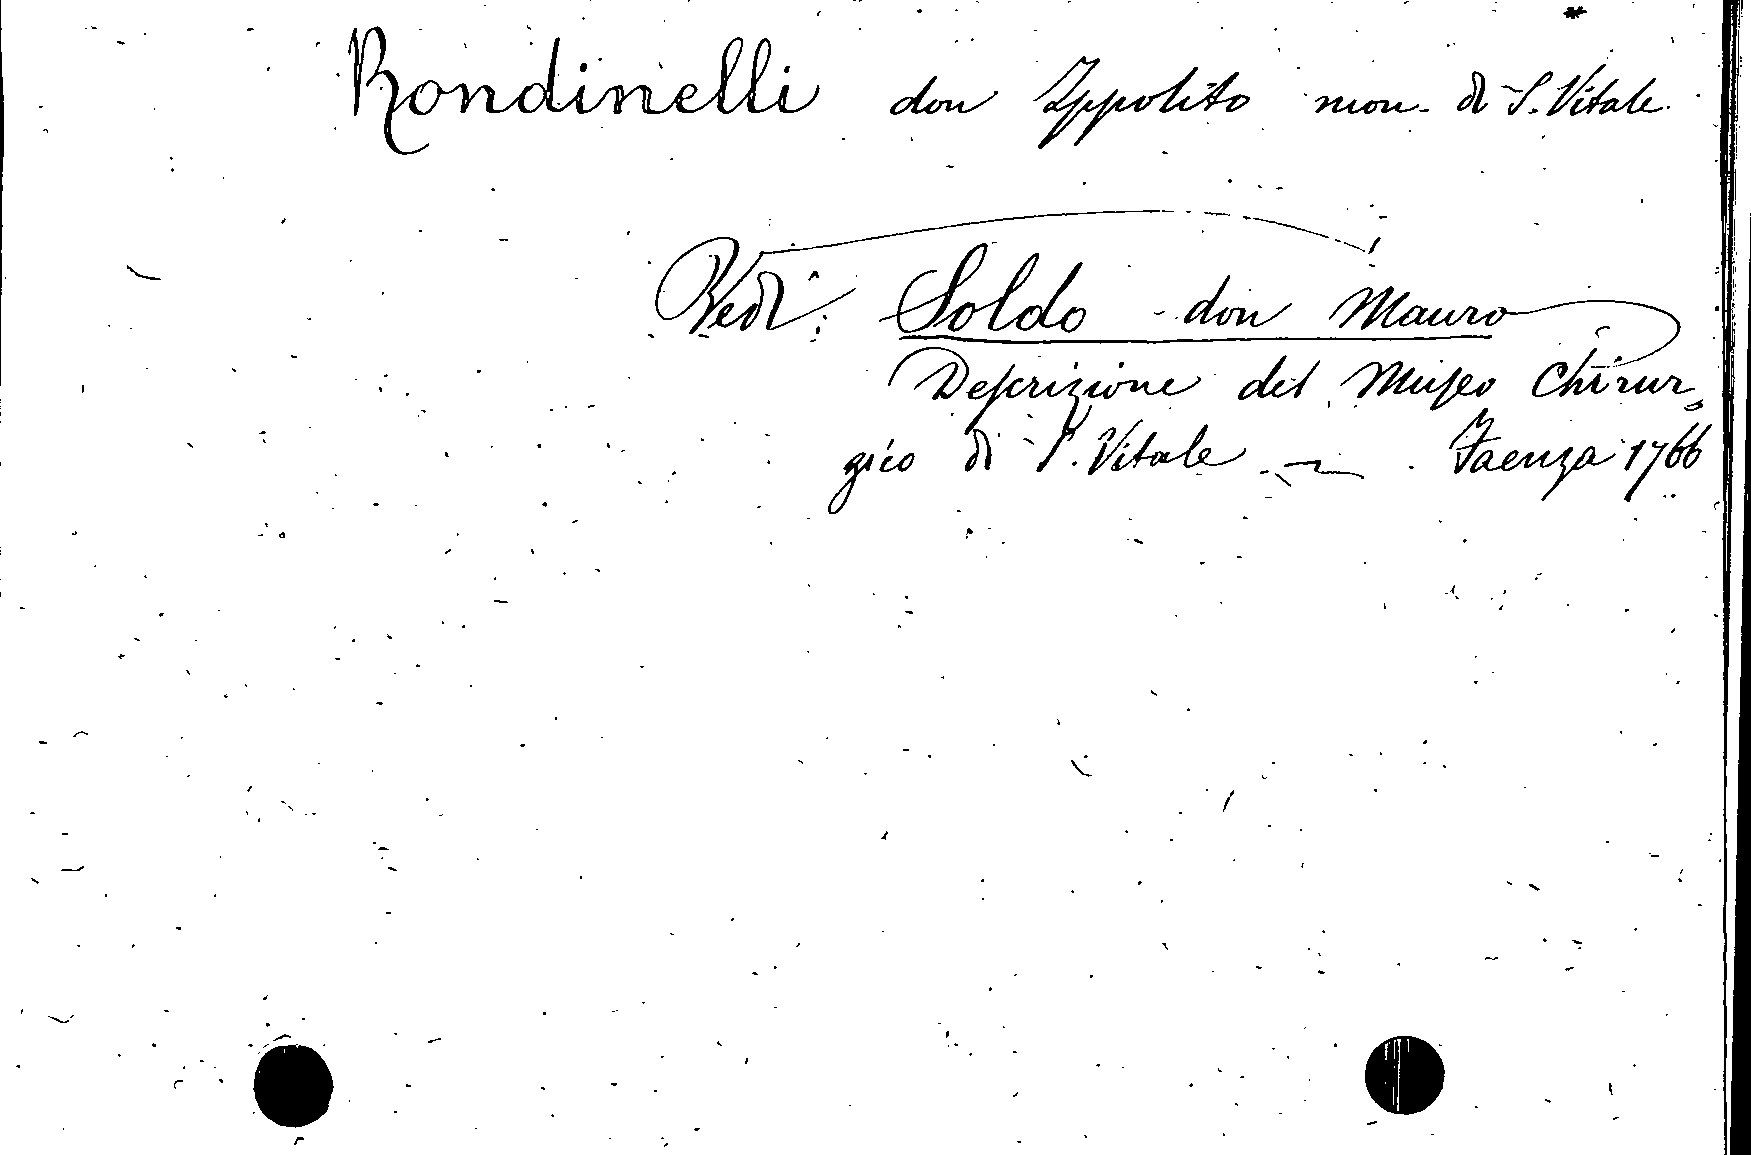 Rondinelli don Ippolito mon. di S. Vitale
Vedi: Soldo don Mauro
Descrizione del Museo Chirur,
gico di S. Vitale — Faenza 1766